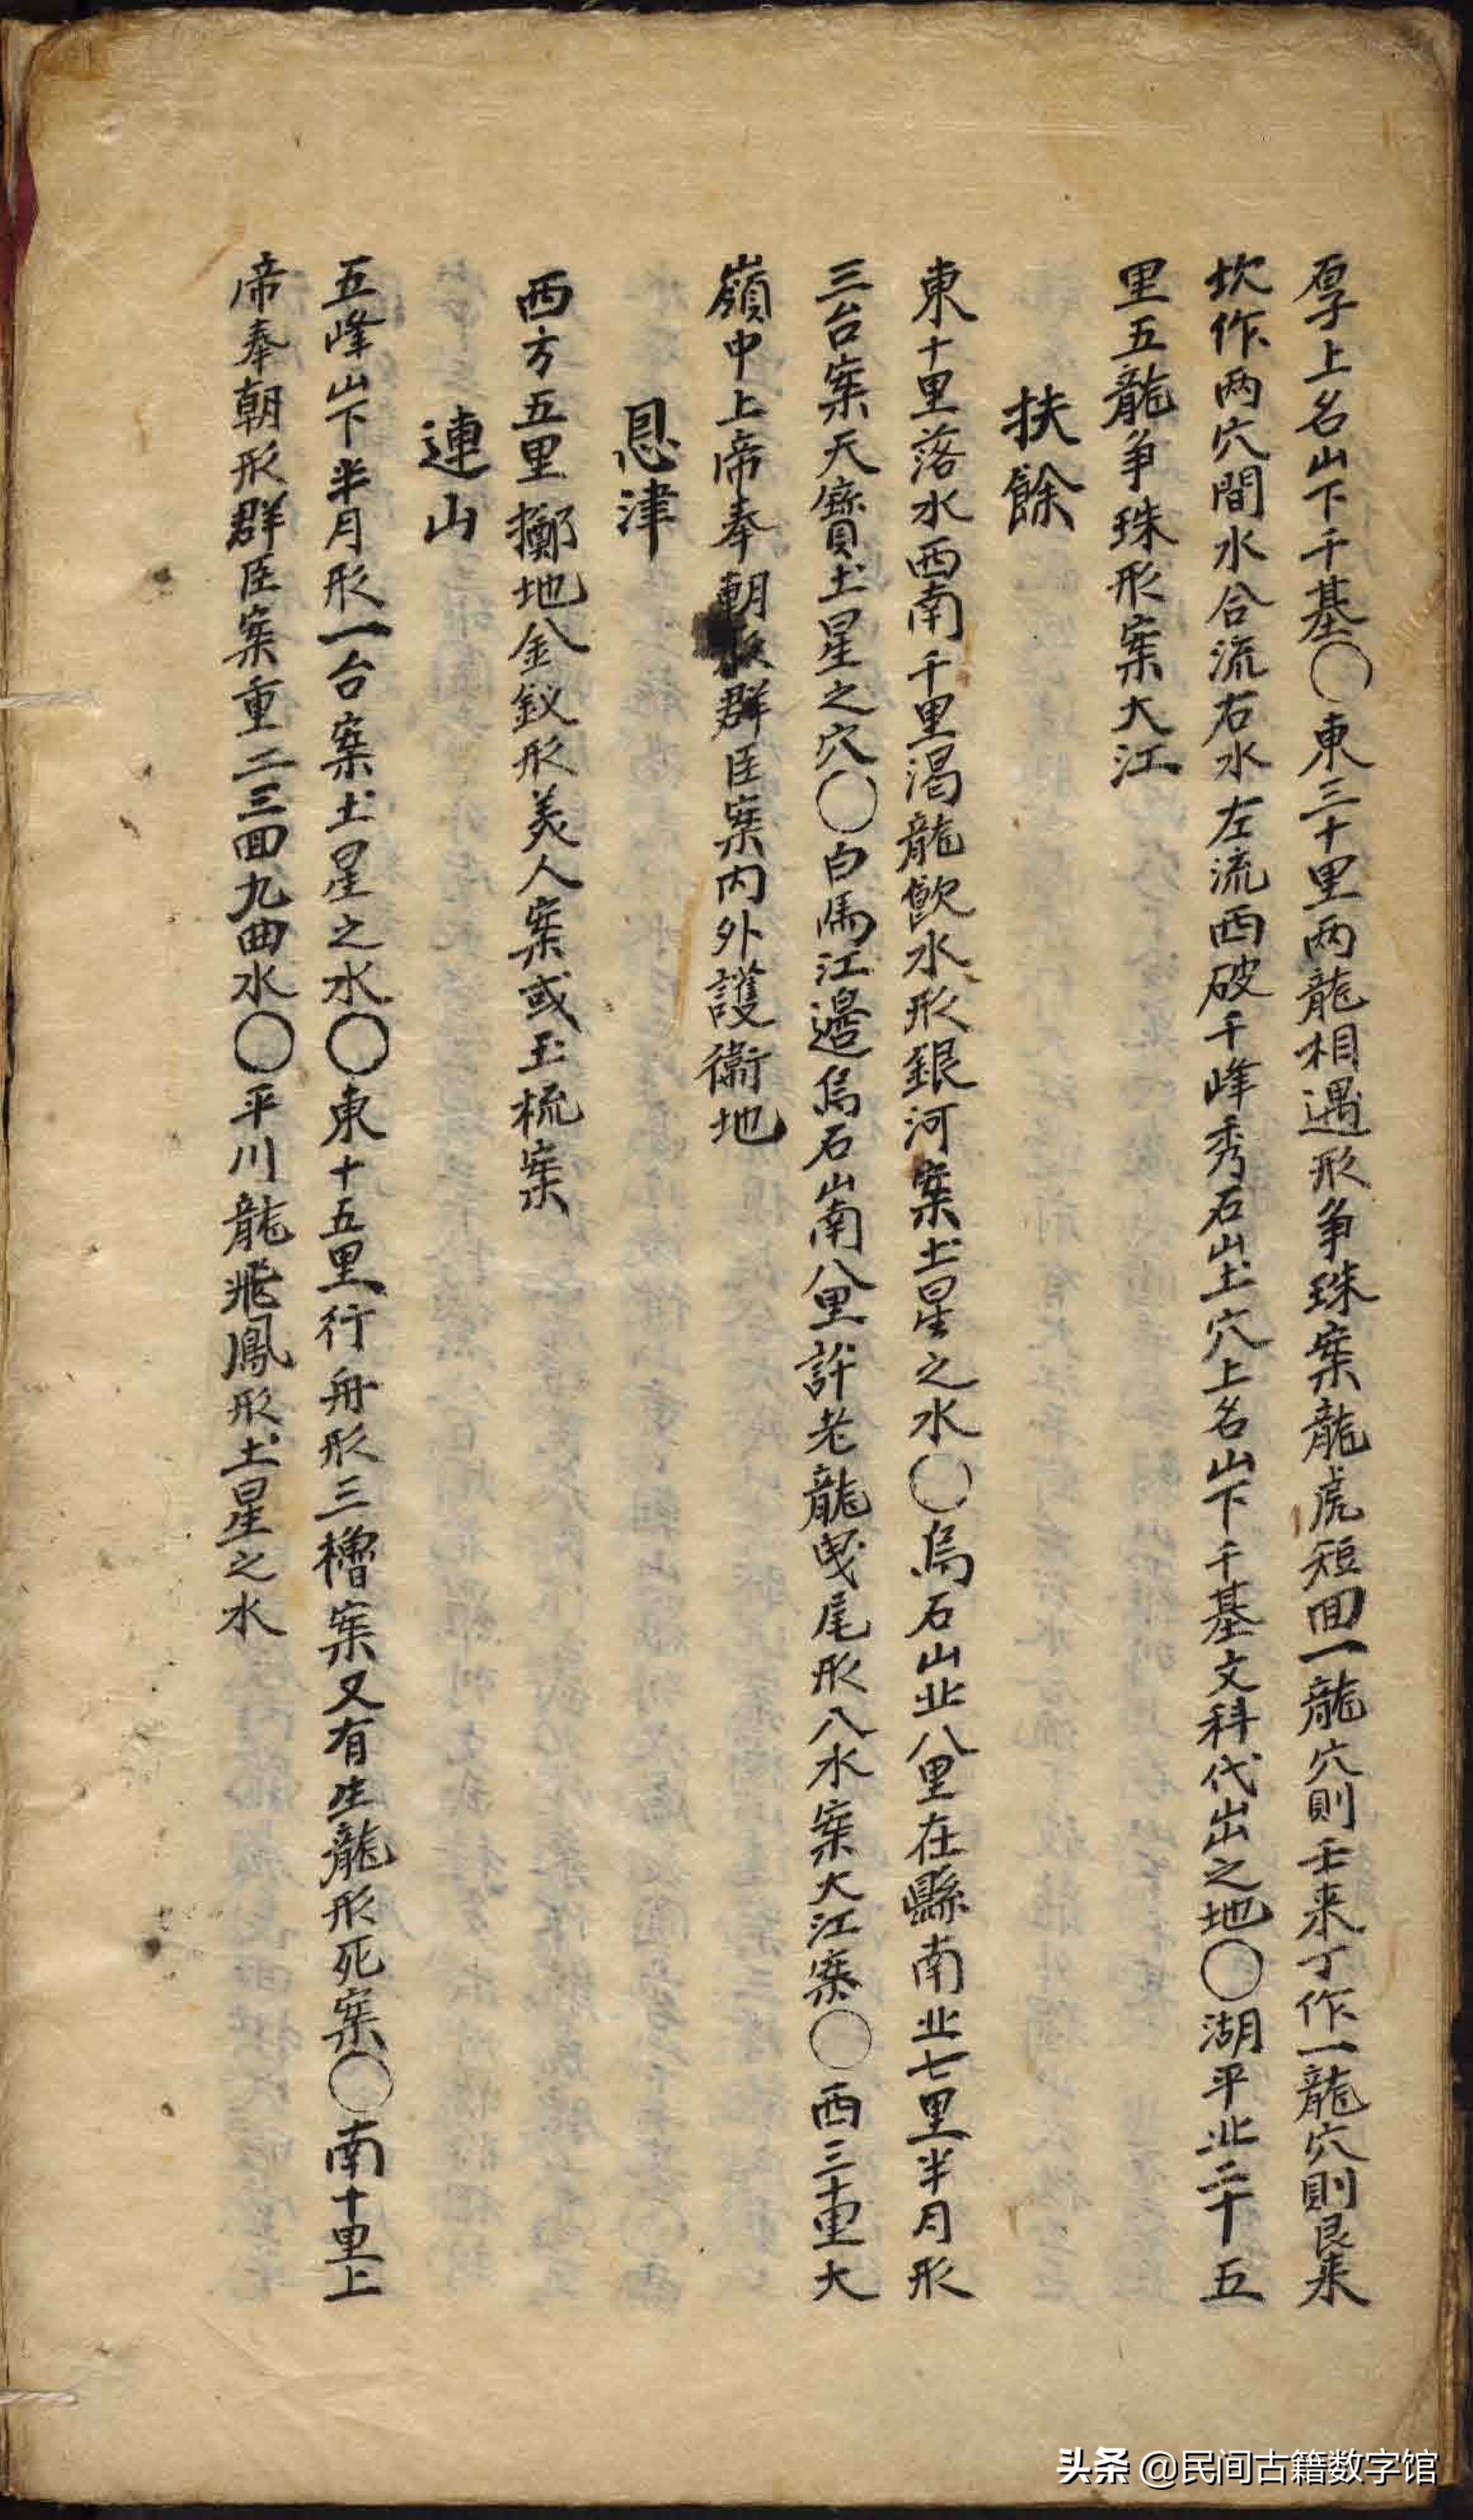 厚上名山下千基〇東三十里两龍相遇形争珠案龍虎短回一龍穴則壬来丁作一龍穴則艮来
坎作两穴間水合流右水左流西破千峰秀石山上穴上名山下千基文科代出之地〇湖平北二十五
里五龍争珠形案大江
扶餘
東十里落水西南千里渴龍飲水形銀河案土星之水〇烏石山北八里在縣南北七里半月形
三台案天寶土星之穴〇白馬江邊烏石山南八里許老龍曳尾形八水案大江案〇西三十里大
嶺中上帝奉朝形群臣案内外護衛地
恩津
西方五里擲地金釵形美人案或玉梳案
連山
五峰山下半月形一台案土星之水〇東十五里行舟形三櫓案又有生龍形死案〇南十里上
帝奉朝形群臣案重二三回九曲水〇平川龍飛鳳形土星之水
头条 @民间古籍数字馆